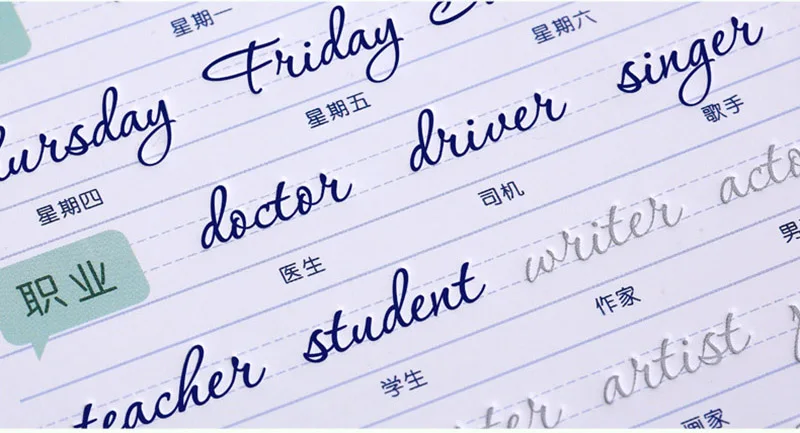 星期一 星期六
Thursday Friday
星期四 星期五
职业
doctor driver singer
医生 司机 歌手
teacher student writer actor
学生 作家 男
artist
画家